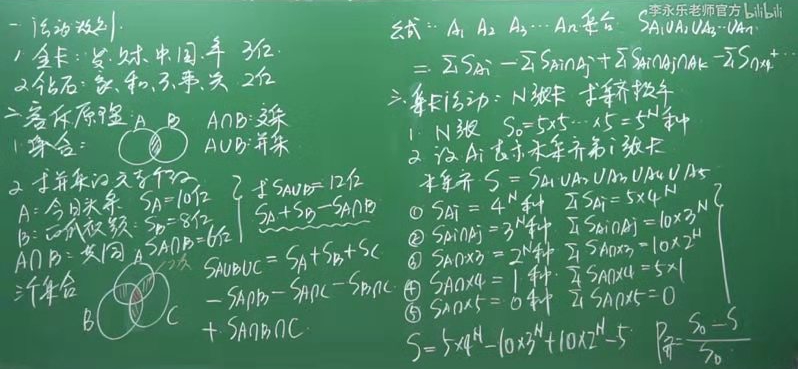 一 活动规则
1 金卡: 发 财 中国 年 3亿
2 钻石: 家 和 万 事 兴 2亿
二 容斥原理:
A B
1 集合:
A∩B: 交集
A∪B: 并集
2 求并集的元素个数
A: 今日头条 SA=10亿
B: SB=8亿
A∩B: 共同 SA∩B=6亿
求 SA∪B=12亿
SA+SB-SA∩B
三个集合
A
B C
SA∪B∪C=SA+SB+SC
-SA∩B-SA∩C-SB∩C
+SA∩B∩C
李永乐老师官方 bilibili
公式: A1 A2 A3…An 集合 SA1∪A2∪A3…∪An
=ΣSAi-ΣSAi∩Aj+ΣSAi∩Aj∩Ak-ΣS∩×4+…
三 集卡活动: N张卡 求集齐概率
1 N张 S0=5×5…×5=5^N种
2 设Ai表示未集齐第i张卡
未集齐 S=SA1∪A2∪A3∪A4∪A5
① SAi=4^N种 ΣSAi=5×4^N
② SAi∩Aj=3^N种 ΣSAi∩Aj=10×3^N
③ SA∩×3=2^N种 ΣSA∩×3=10×2^N
④ SA∩×4=1种 ΣSA∩×4=5×1
⑤ SA∩×5=0种 ΣSA∩×5=0
S=5×4^N-10×3^N+10×2^N-5
P齐=(S0-S)/S0